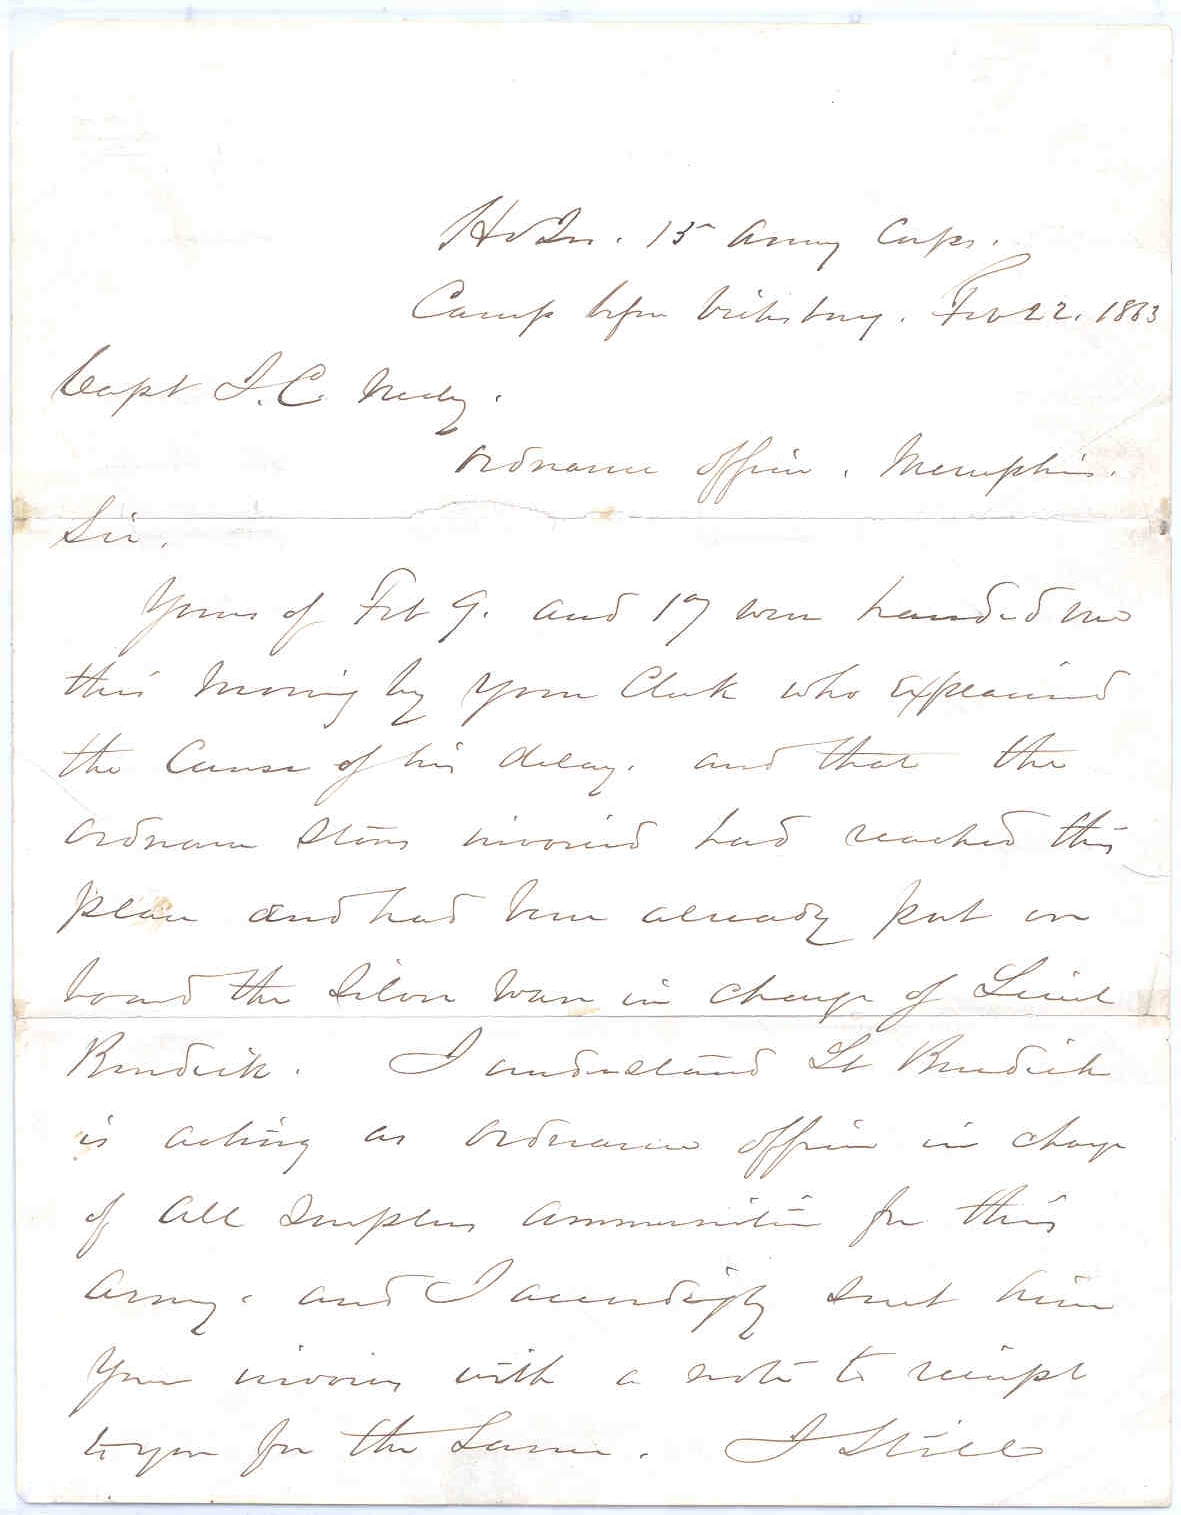 Hd Qrs. 15 Army Corps.
Camp before Vicksburg. Feb 22. 1863
Capt J. C. Neely.
Ordnance Officer. Memphis.
Sir.
Yours of Feb 9. and 17 were handed me
this morning by your Clerk who explained
the Cause of his delay. and that the
Ordnance Stores invoiced had reached this
place and had been already put on
board the Silver Wave in charge of Lieut
Burdick. I understand Lt Burdick
is acting as Ordnance Officer in charge
of all Surplus ammunition for this
Army. and I accordingly sent him
Your invoices with a note to receipt
to you for the Same. I Still